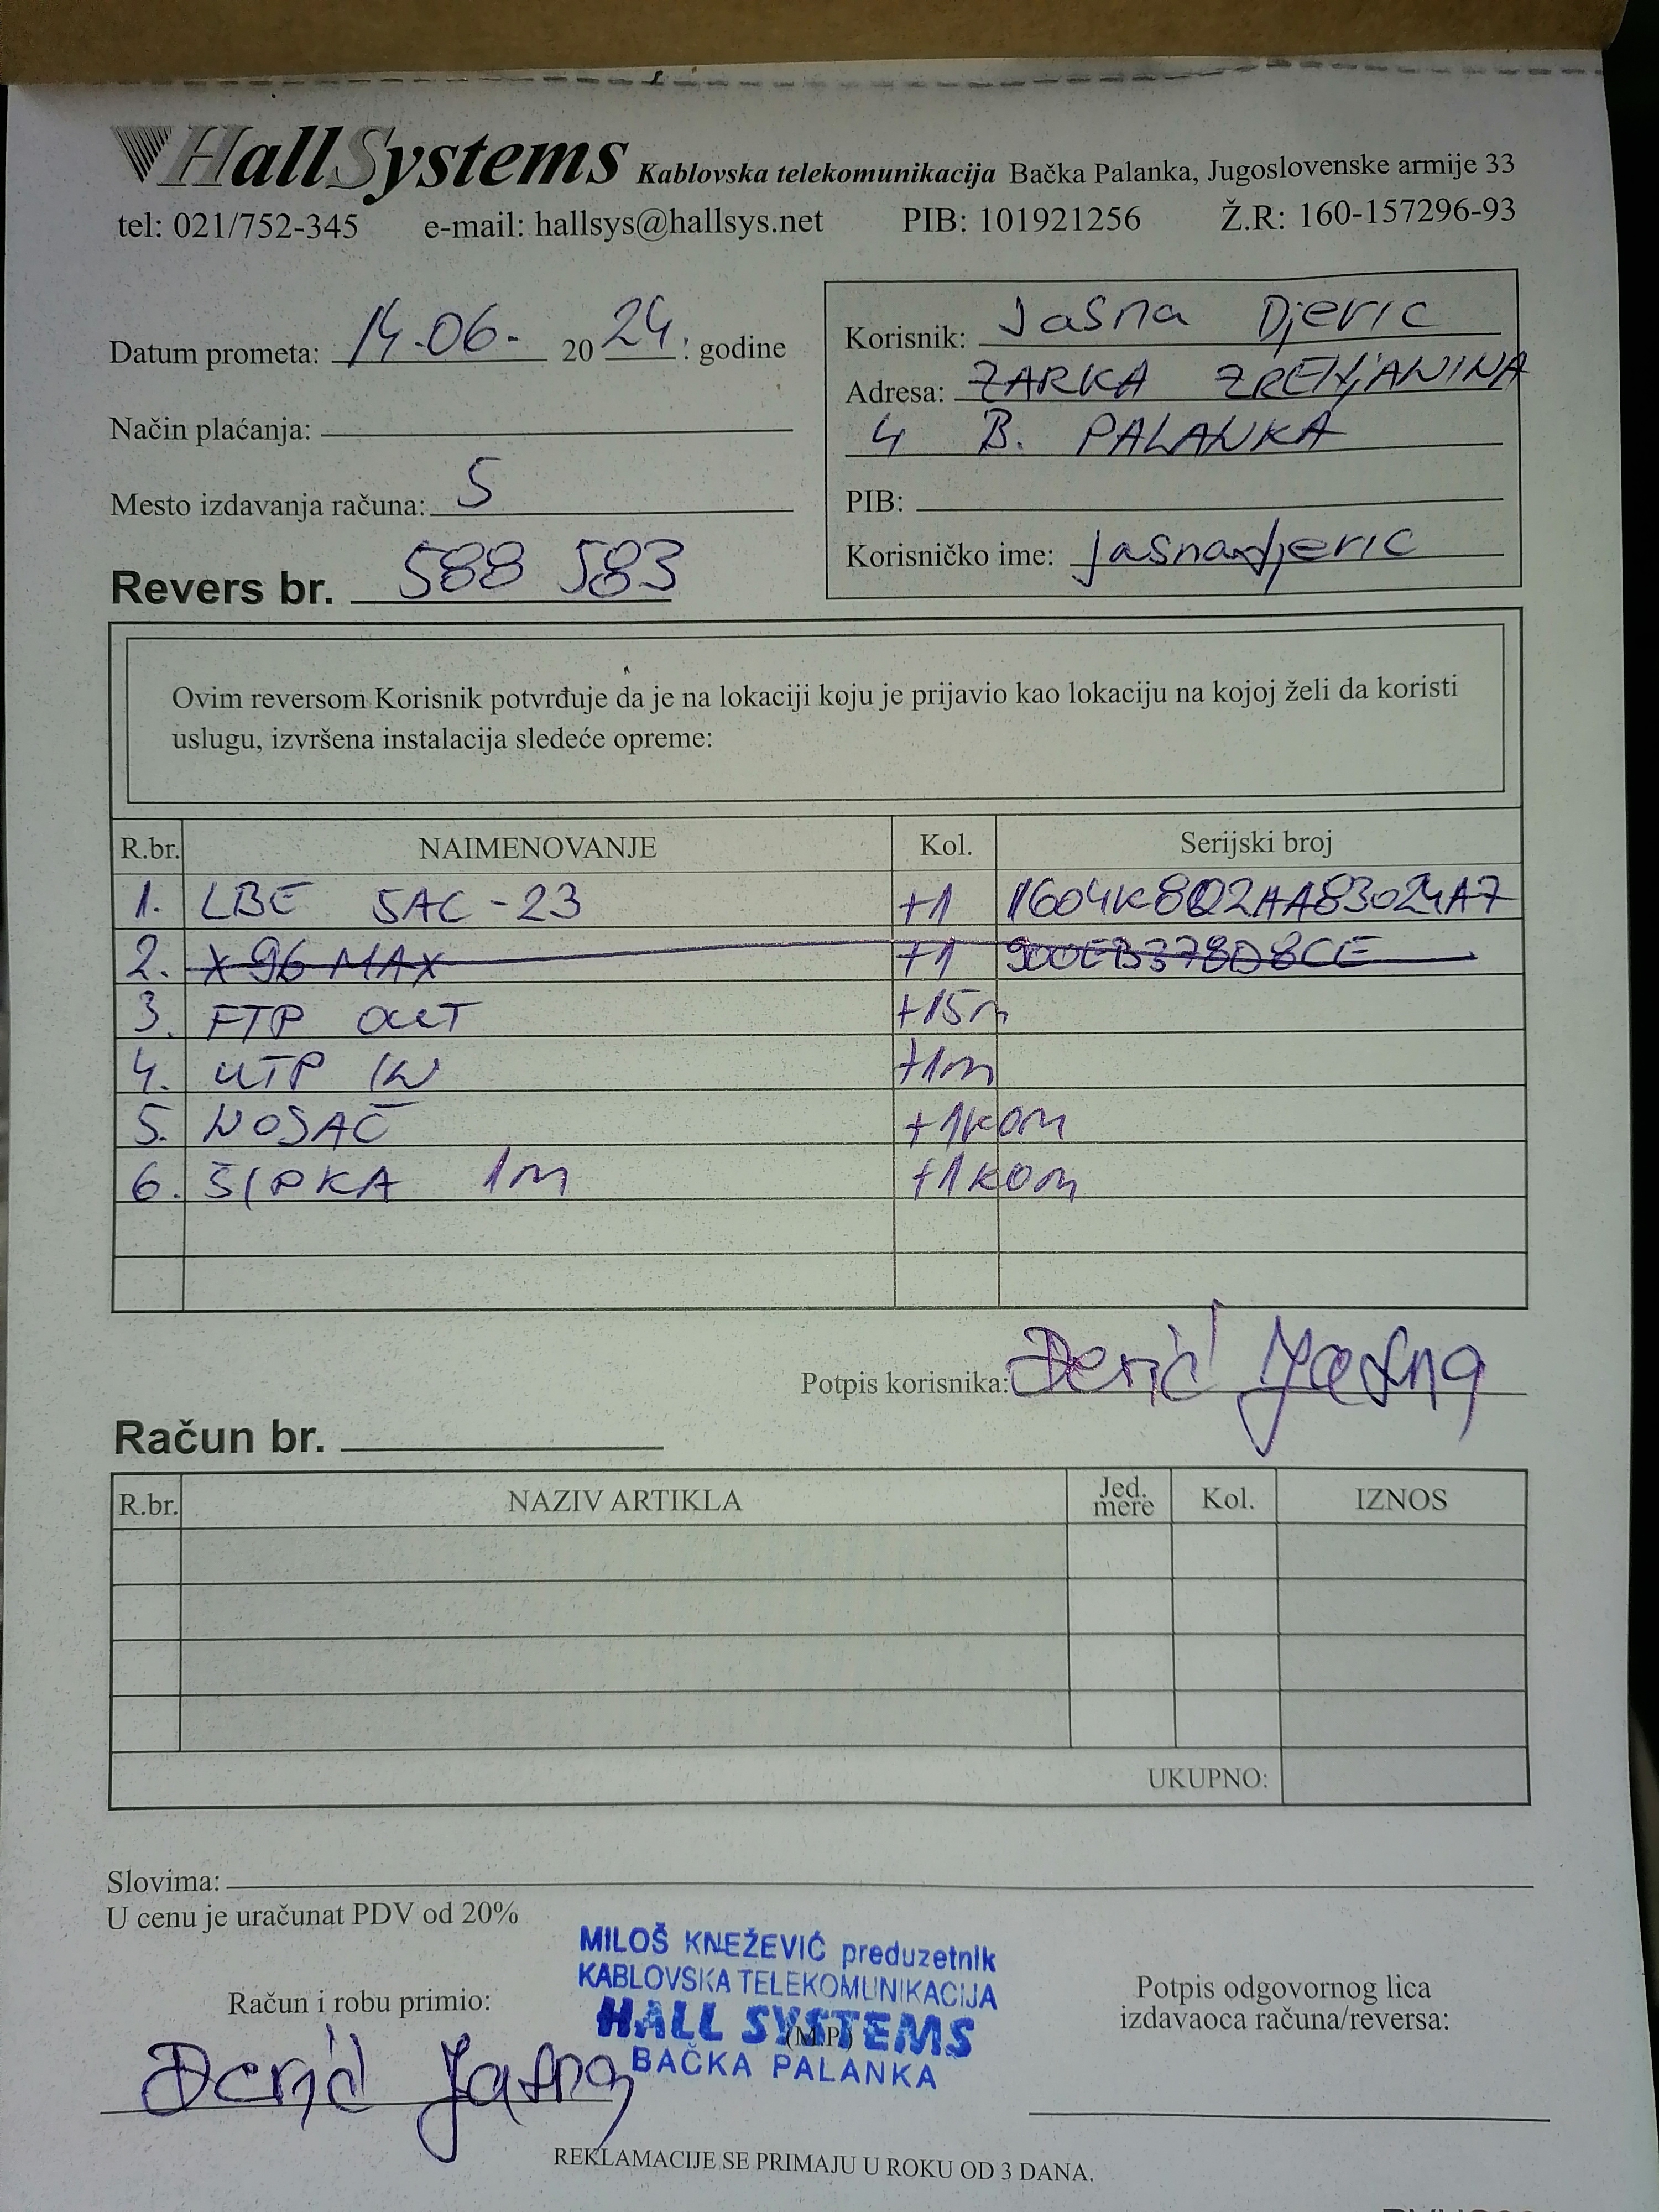 HallSystems Kablovska telekomunikacija Bačka Palanka, Jugoslovenske armije 33
tel: 021/752-345 e-mail: hallsys@hallsys.net PIB: 101921256 Ž.R: 160-157296-93
Datum prometa: 14.06. 2024. godine
Način plaćanja:
Mesto izdavanja računa: S
Revers br. 588 583
Korisnik: Jasna Djeric
Adresa: ZARKA ZRENjANINA
4 B. PALANKA
PIB:
Korisničko ime: jasnadjeric
Ovim reversom Korisnik potvrđuje da je na lokaciji koju je prijavio kao lokaciju na kojoj želi da koristi
uslugu, izvršena instalacija sledeće opreme:
R.br. NAIMENOVANJE Kol. Serijski broj
1. LBE 5AC-23 +1 1604K802AA83024A7
2. X96 MAX +1 900EB378D8CE
3. FTP OUT +15m
4. UTP IN +1m
5. NOSAČ +1kom
6. ŠIPKA 1m +1kom
Potpis korisnika: Đerić Jasna
Račun br.
R.br. NAZIV ARTIKLA Jed. mere Kol. IZNOS
UKUPNO:
Slovima:
U cenu je uračunat PDV od 20%
MILOŠ KNEŽEVIĆ preduzetnik
KABLOVSKA TELEKOMUNIKACIJA
HALL SYSTEMS
(M.P.)
BAČKA PALANKA
Račun i robu primio:
Đerić Jasna
Potpis odgovornog lica
izdavaoca računa/reversa:
REKLAMACIJE SE PRIMAJU U ROKU OD 3 DANA.